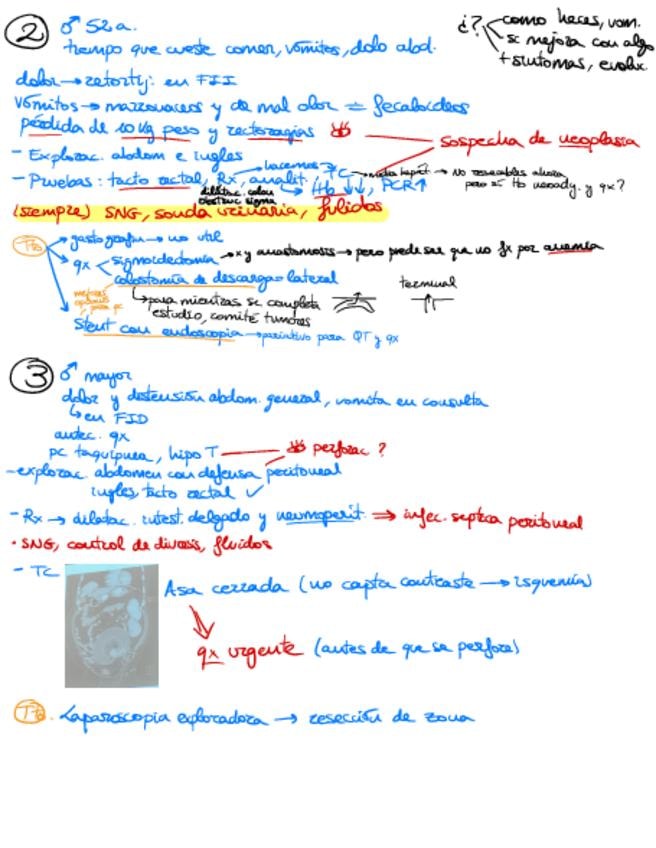 ② ♂ 52 a.
tiempo que cueste comer, vómitos, dolo abd.
¿? como heces, vom.
se mejora con algo
+ síntomas, evoluc.
dolor → retortij: en FII
vómitos → marronaceos y de mal olor = fecaloideos
pérdida de 10 Kg peso y rectoragias
sospecha de neoplasia
- Explorac. abdom e ingles
- Pruebas: tacto rectal, Rx, analít. hacemos → TC → meta hepát → No resecables ahora
dilatac. colon → Hb ↓↓, PCR↑ pero si Hb y qx?
obstruc sigma
(siempre) SNG, sonda urinaria, fluidos
Tto → gastografin → no util
→ qx sigmoidectomía → x y anastomosis → pero puede ser que no fx por anemia
colostomía de descarga lateral terminal
mejores opciones para pc
↳ para mientras se completa
estudio, comité tumores
Stent con endoscopia → paliativo para QT y qx
③ ♂ mayor
dolor y distensión abdom. general, vomita en consulta
↳ en FID
antec. qx
pc taquipnea, hipo T perforac?
- explorac. abdomen con defensa peritoneal
ingles, tacto rectal ✓
- Rx → dilatac. intest. delgado y neumoperit. ⇒ infec. septica peritoneal
• SNG, control de diuresis, fluidos
- TC
Asa cerrada (no capta contraste → isquemia)
qx urgente (antes de que se perfore)
Tto. Laparoscopia exploradora → resección de zona